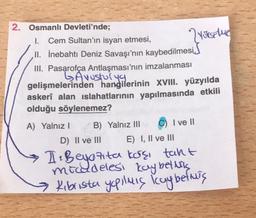 2. Osmanlı Devleti'nde;
I. Cem Sultan'ın isyan etmesi,
II. İnebahtı Deniz Savaşı'nın kaybedilmesi,
III. Pasarofça Antlaşması'nın imzalanması
↳Avusturya
gelişmelerinden hangilerinin XVIII. yüzyılda
askerî alan ıslahatlarının yapılmasında etkili
olduğu söylenemez?
A) Yalnız I B) Yalnız III C) I ve II
D) II ve III E) I, II ve III
→ II. Beyazıta karşı taht
mücadelesi kaybetmiş
→ Kıbrısta yapılmış kaybetmiş